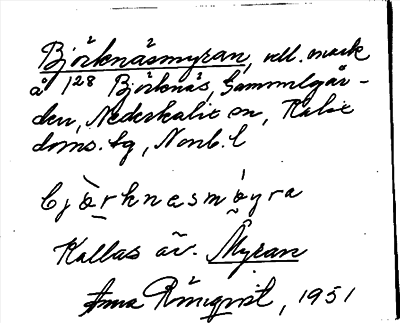 Björknäsmyran, odl. mark
å 128 Björknäs, Gammelgår-
den, Nederkalix sn, Kalix
doms. tg, Norrb. l
bjœ̀rknesmyra
Kallas äv. Myran
Anna Rönnqvist, 1951